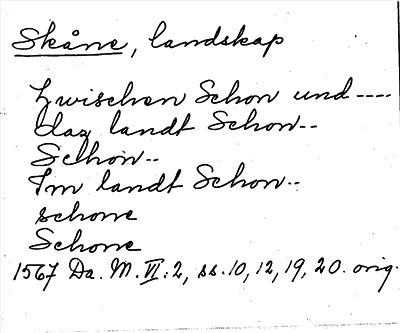 Skåne, landskap
Zwischen Schon und ----
daz landt Schon--
Schon--
Im landt Schon--
schone
Schone
1567 Da. M. VI:2, ss. 10, 12, 19, 20. orig.